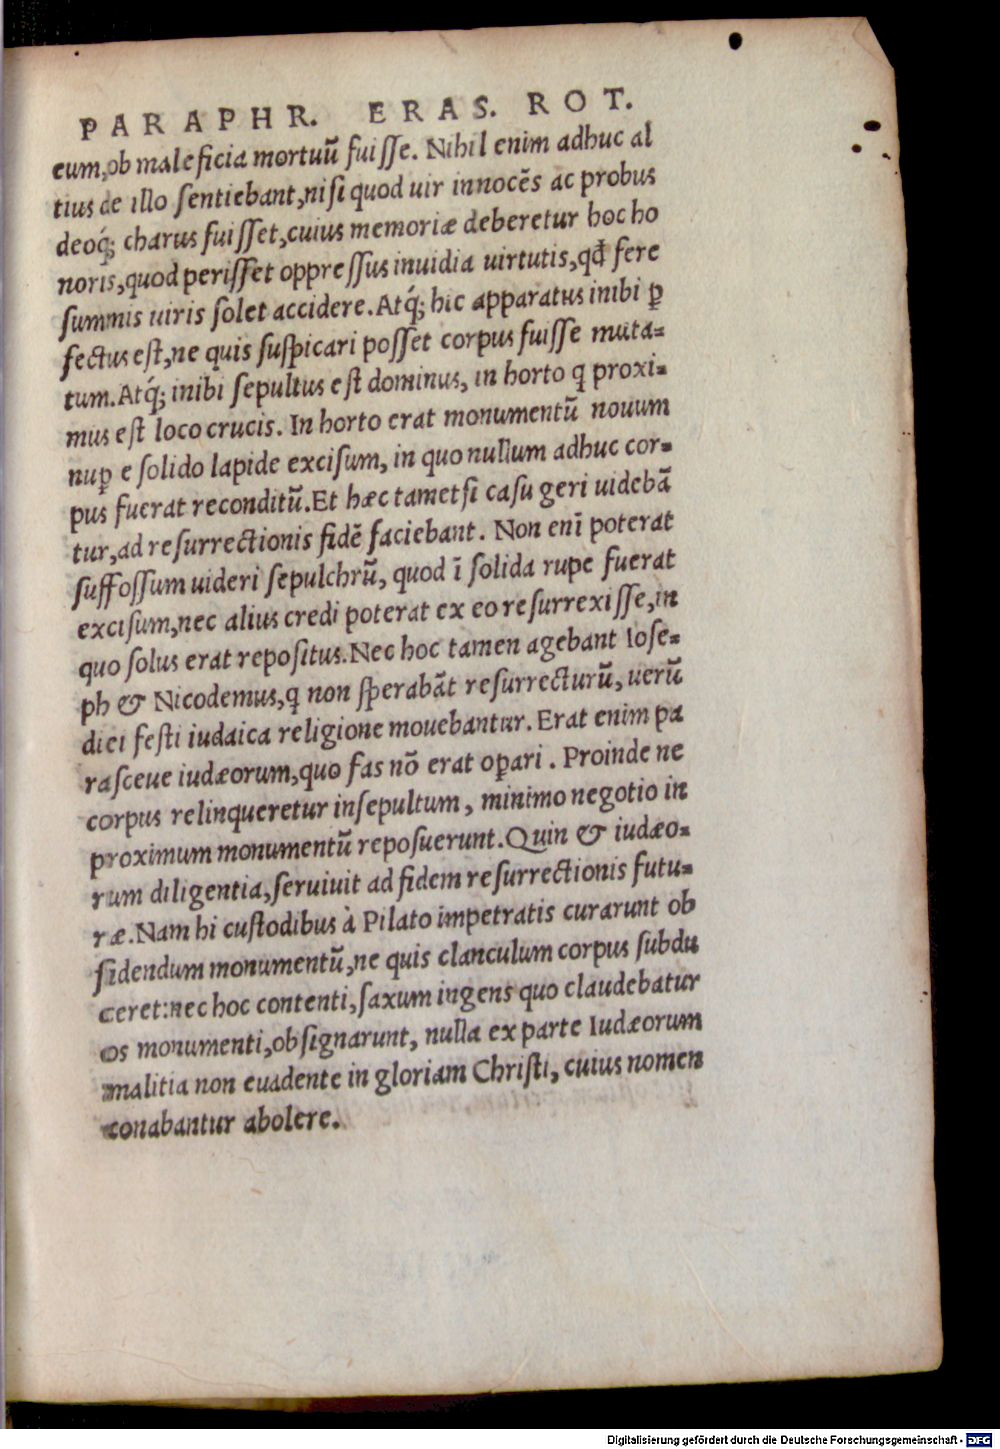 PARAPHR. ERAS. ROT.
eum, ob maleficia mortuũ fuisse. Nihil enim adhuc al
tius de illo sentiebant, nisi quod uir innocẽs ac probus
deoq́; charus fuisset, cuius memoriæ deberetur hoc ho
noris, quod perisset oppressus inuidia uirtutis, qđ fere
summis uiris solet accidere. Atq́; hic apparatus inibi ꝑ
fectus est, ne quis suspicari posset corpus fuisse muta-
tum. Atq́; inibi sepultus est dominus, in horto q proxi-
mus est loco crucis. In horto erat monumentũ nouum
nuꝑ e solido lapide excisum, in quo nullum adhuc cor-
pus fuerat reconditũ. Et hæc tametsi casu geri uidebã
tur, ad resurrectionis fidẽ faciebant. Non enĩ poterat
suffossum uideri sepulchrũ, quod ĩ solida rupe fuerat
excisum, nec alius credi poterat ex eo resurrexisse, in
quo solus erat repositus. Nec hoc tamen agebant Iose-
ph & Nicodemus, q non sperabãt resurrecturũ, uerũ
diei festi iudaica religione mouebantur. Erat enim pa
rasceue iudæorum, quo fas nõ erat oꝑari. Proinde ne
corpus relinqueretur insepultum, minimo negotio in
proximum monumentũ reposuerunt. Quin & iudæo-
rum diligentia, seruiuit ad fidem resurrectionis futu-
ræ. Nam hi custodibus à Pilato impetratis curarunt ob
sidendum monumentũ, ne quis clanculum corpus subdu
ceret: nec hoc contenti, saxum ingens quo claudebatur
os monumenti, obsignarunt, nulla ex parte Iudæorum
malitia non euadente in gloriam Christi, cuius nomen
conabantur abolere.
Digitalisierung gefördert durch die Deutsche Forschungsgemeinschaft - DFG